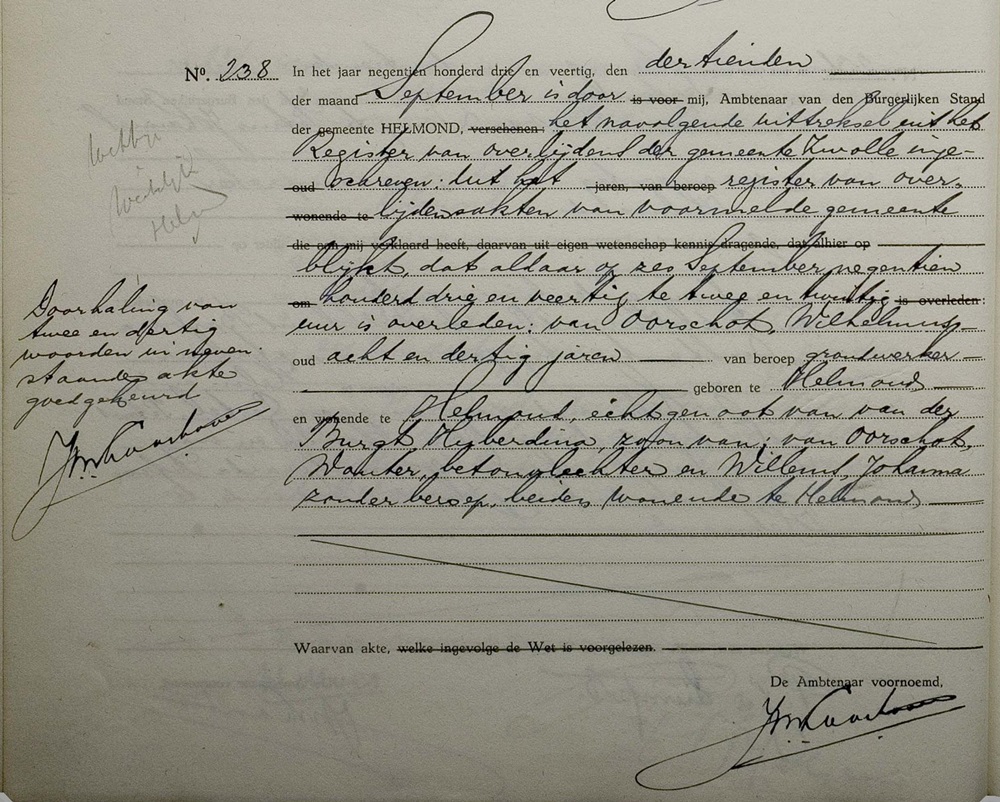 No. 238 In het jaar negentien honderd drie en veertig, den dertienden
der maand September is door is voor mij, Ambtenaar van den Burgerlijken Stand
der gemeente HELMOND, verschenen: het navolgende uittreksel uit het
Register van overlijden der gemeente Zwolle inge-
oud schreven: Uit het jaren, van beroep register van over-
wonende te lijdensakten van voormelde gemeente
die aan mij verklaard heeft, daarvan uit eigen wetenschap kennis dragende, dat alhier op
blijkt, dat aldaar op zes September negentien
om honderd drie en veertig te twee en twintig is overleden:
uur is overleden: van Oorschot, Wilhelmus,
oud acht en dertig jaren van beroep grondwerker
geboren te Helmond
en wonende te Helmond, echtgenoot van van der
Burgt, Huberdina, zoon van: van Oorschot,
Wouter, betonvlechter en Willems, Johanna
zonder beroep, beiden wonende te Helmond
Waarvan akte, welke ingevolge de Wet is voorgelezen.
De Ambtenaar voornoemd,
Doorhaling van
twee en dertig
woorden in neven-
staande akte
goedgekeurd